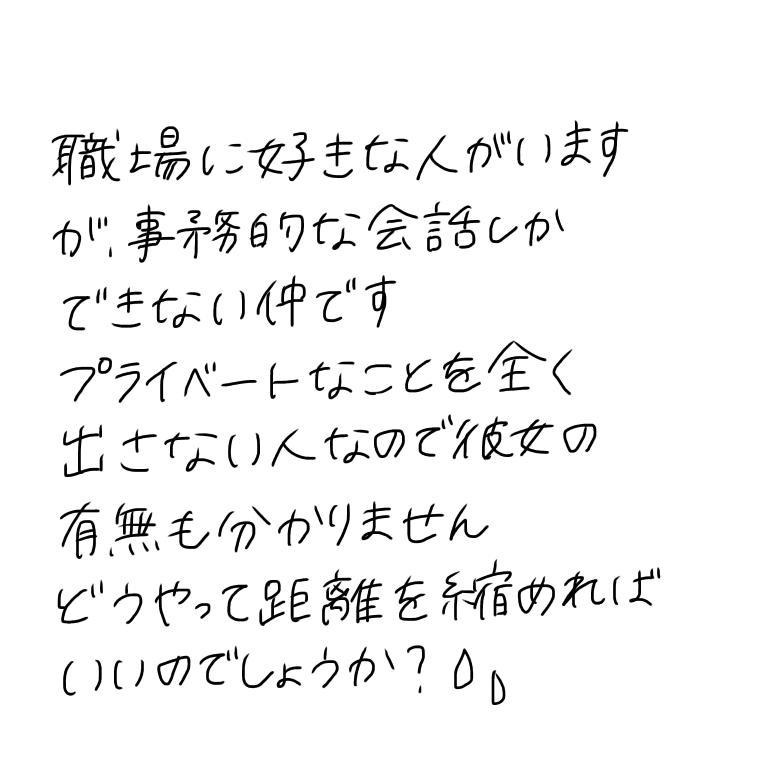 職場に好きな人がいます
が、事務的な会話しか
できない仲です
プライベートなことを全く
出さない人なので彼女の
有無も分かりません
どうやって距離を縮めれば
いいのでしょうか？